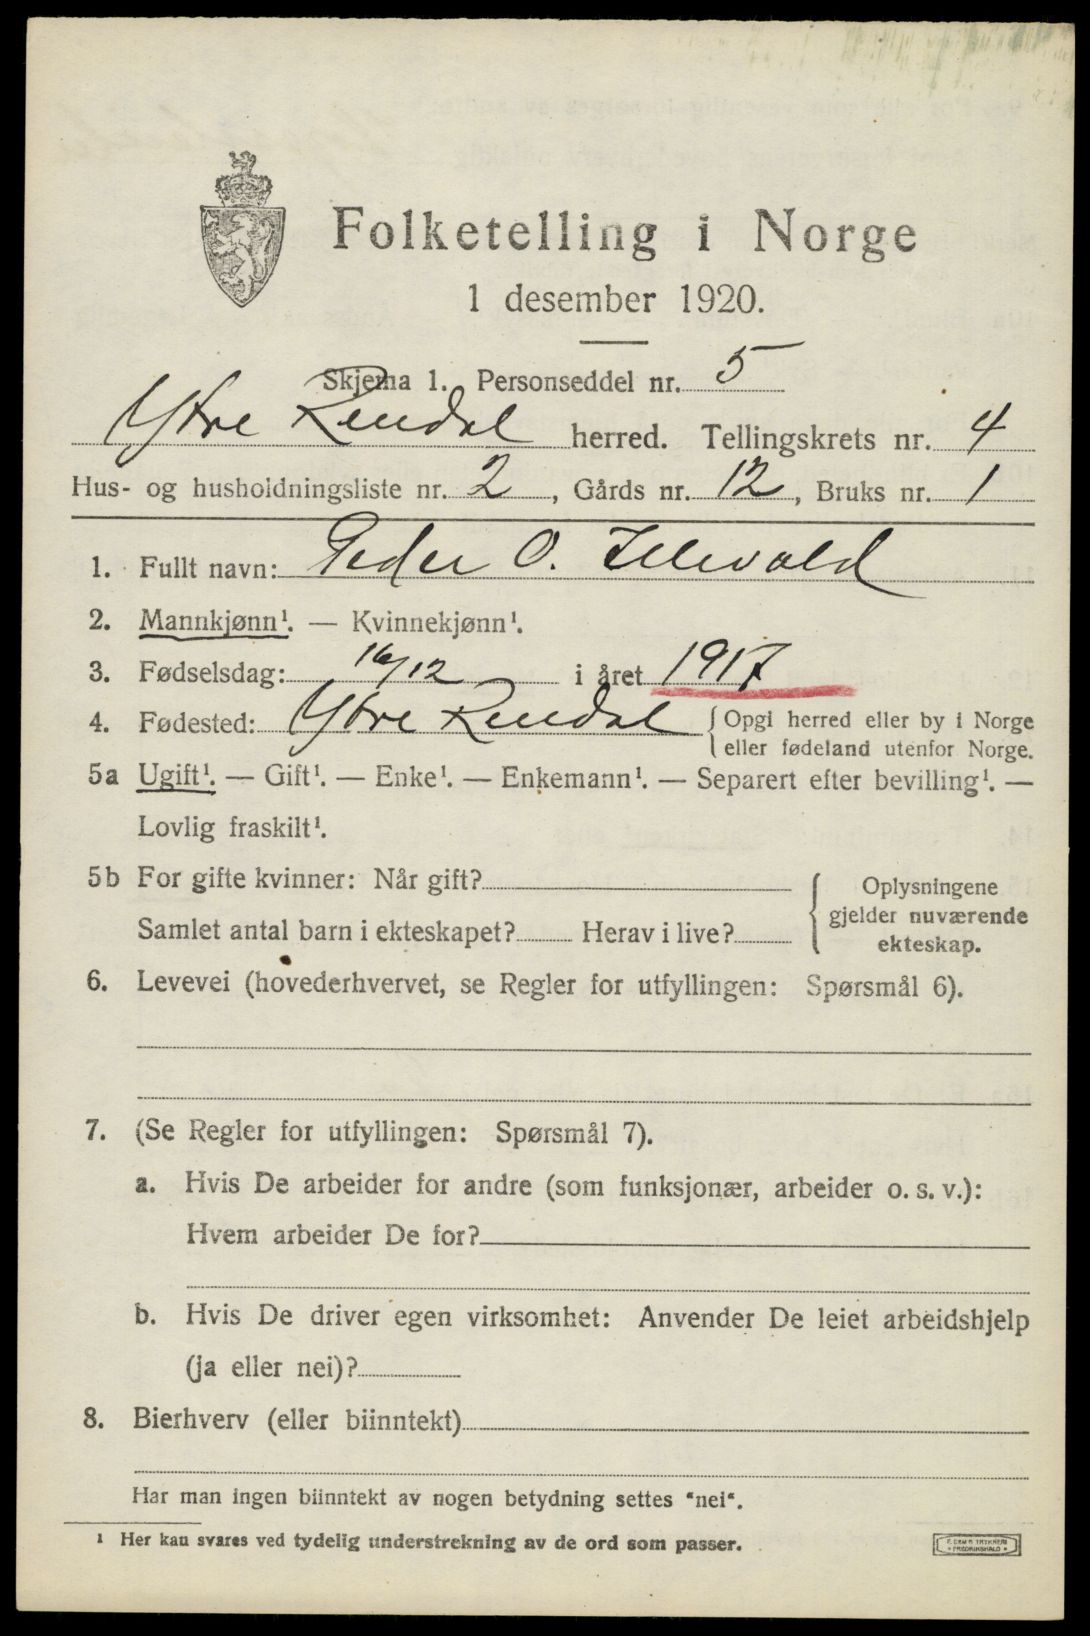 Folketelling i Norge
1 desember 1920.
Skjema 1. Personseddel nr. 5
Ytre Rendal herred. Tellingskrets nr. 4
Hus- og husholdningsliste nr. 2, Gårds nr. 12, Bruks nr. 1
1. Fullt navn: Peder O. Illevold
2. Mannkjønn¹. — Kvinnekjønn¹.
3. Fødselsdag: 16/12 i året 1917
4. Fødested: Ytre Rendal { Opgi herred eller by i Norge
eller fødeland utenfor Norge.
5a Ugift¹. — Gift¹. — Enke¹. — Enkemann¹. — Separert efter bevilling¹. —
Lovlig fraskilt¹.
5b For gifte kvinner: Når gift?
Samlet antal barn i ekteskapet? Herav i live?
Oplysningene
gjelder nuværende
ekteskap.
6. Levevei (hovederhvervet, se Regler for utfyllingen: Spørsmål 6).
7. (Se Regler for utfyllingen: Spørsmål 7).
a. Hvis De arbeider for andre (som funksjonær, arbeider o. s. v.):
Hvem arbeider De for?
b. Hvis De driver egen virksomhet: Anvender De leiet arbeidshjelp
(ja eller nei)?
8. Bierhverv (eller biinntekt)
Har man ingen biinntekt av nogen betydning settes "nei".
¹ Her kan svares ved tydelig understrekning av de ord som passer.